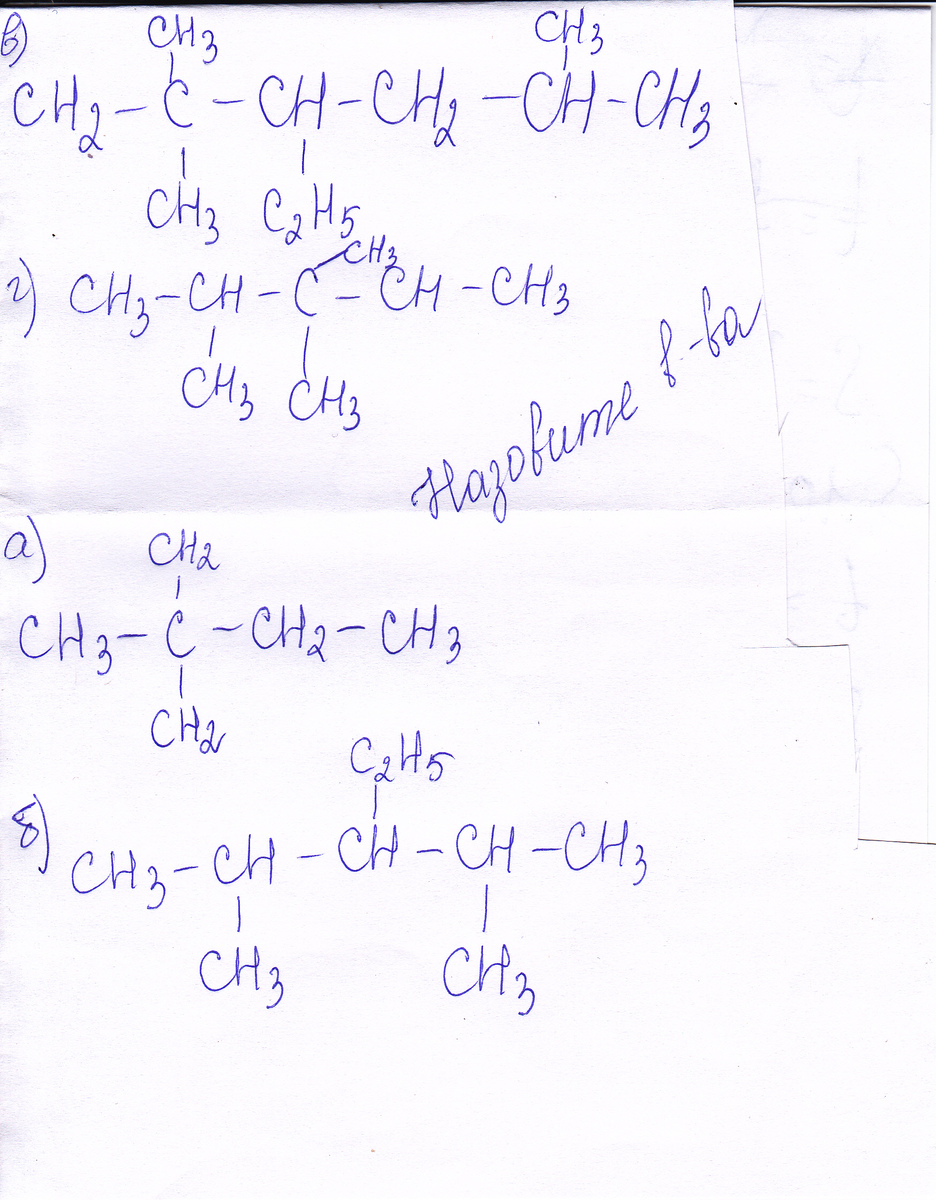 в) CH3 CH3
CH2 – C – CH – CH2 – CH – CH3
CH3 C2H5
г) CH3 – CH – C – CH – CH3
CH3
CH3 CH3
Назовите в-ва
а) CH2
CH3 – C – CH2 – CH3
CH2
C2H5
б) CH3 – CH – CH – CH – CH3
CH3 CH3